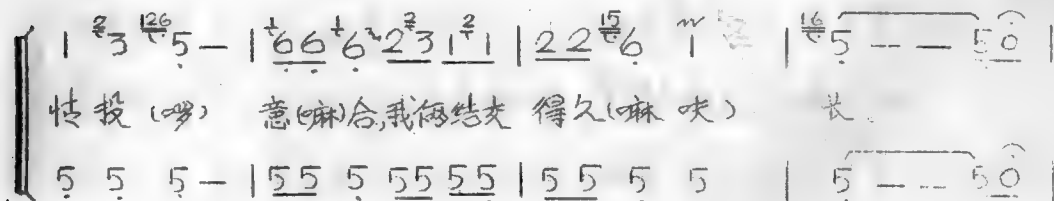 1 3 5 — | 66 6 23 11 | 22 6 1 | 5 — — 50 |
情投(啰) 意(嘛)合,我俩结交 得久(嘛咲) 长
5 5 5 — | 55 5 55 55 | 55 5 5 | 5 — — 50 |